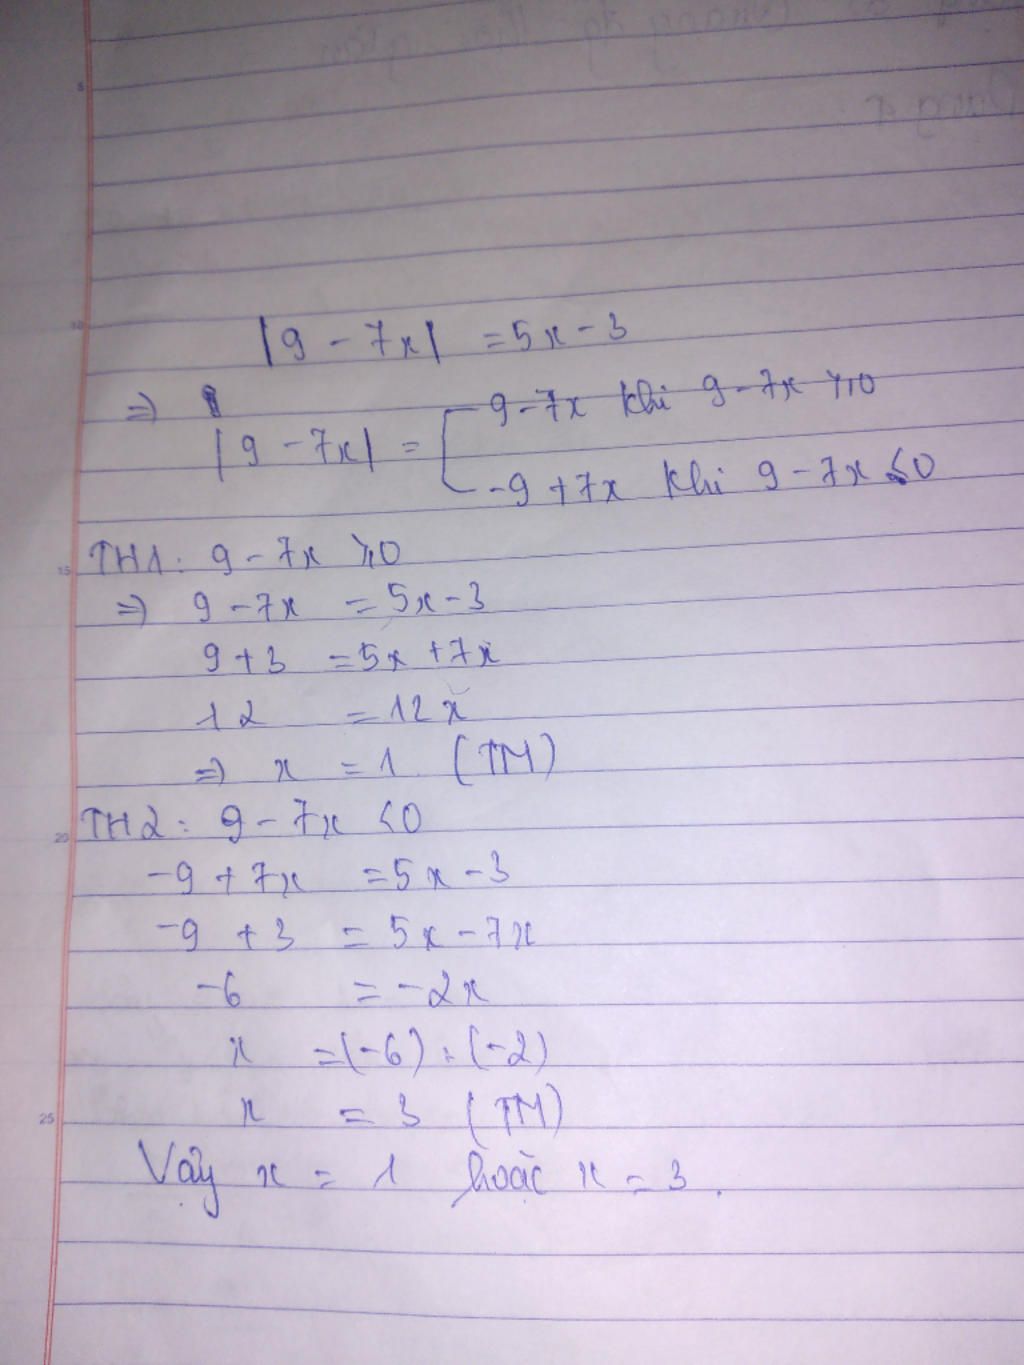 |9 - 7x| = 5x - 3
=>
|9 - 7x| = [ 9 - 7x khi 9 - 7x ≥ 0
-9 + 7x khi 9 - 7x < 0
15
TH1: 9 - 7x ≥ 0
=> 9 - 7x = 5x - 3
9 + 3 = 5x + 7x
12 = 12x
=> x = 1 (TM)
20
TH2: 9 - 7x < 0
-9 + 7x = 5x - 3
-9 + 3 = 5x - 7x
-6 = -2x
x = (-6) : (-2)
25
x = 3 (TM)
Vậy x = 1 hoặc x = 3.